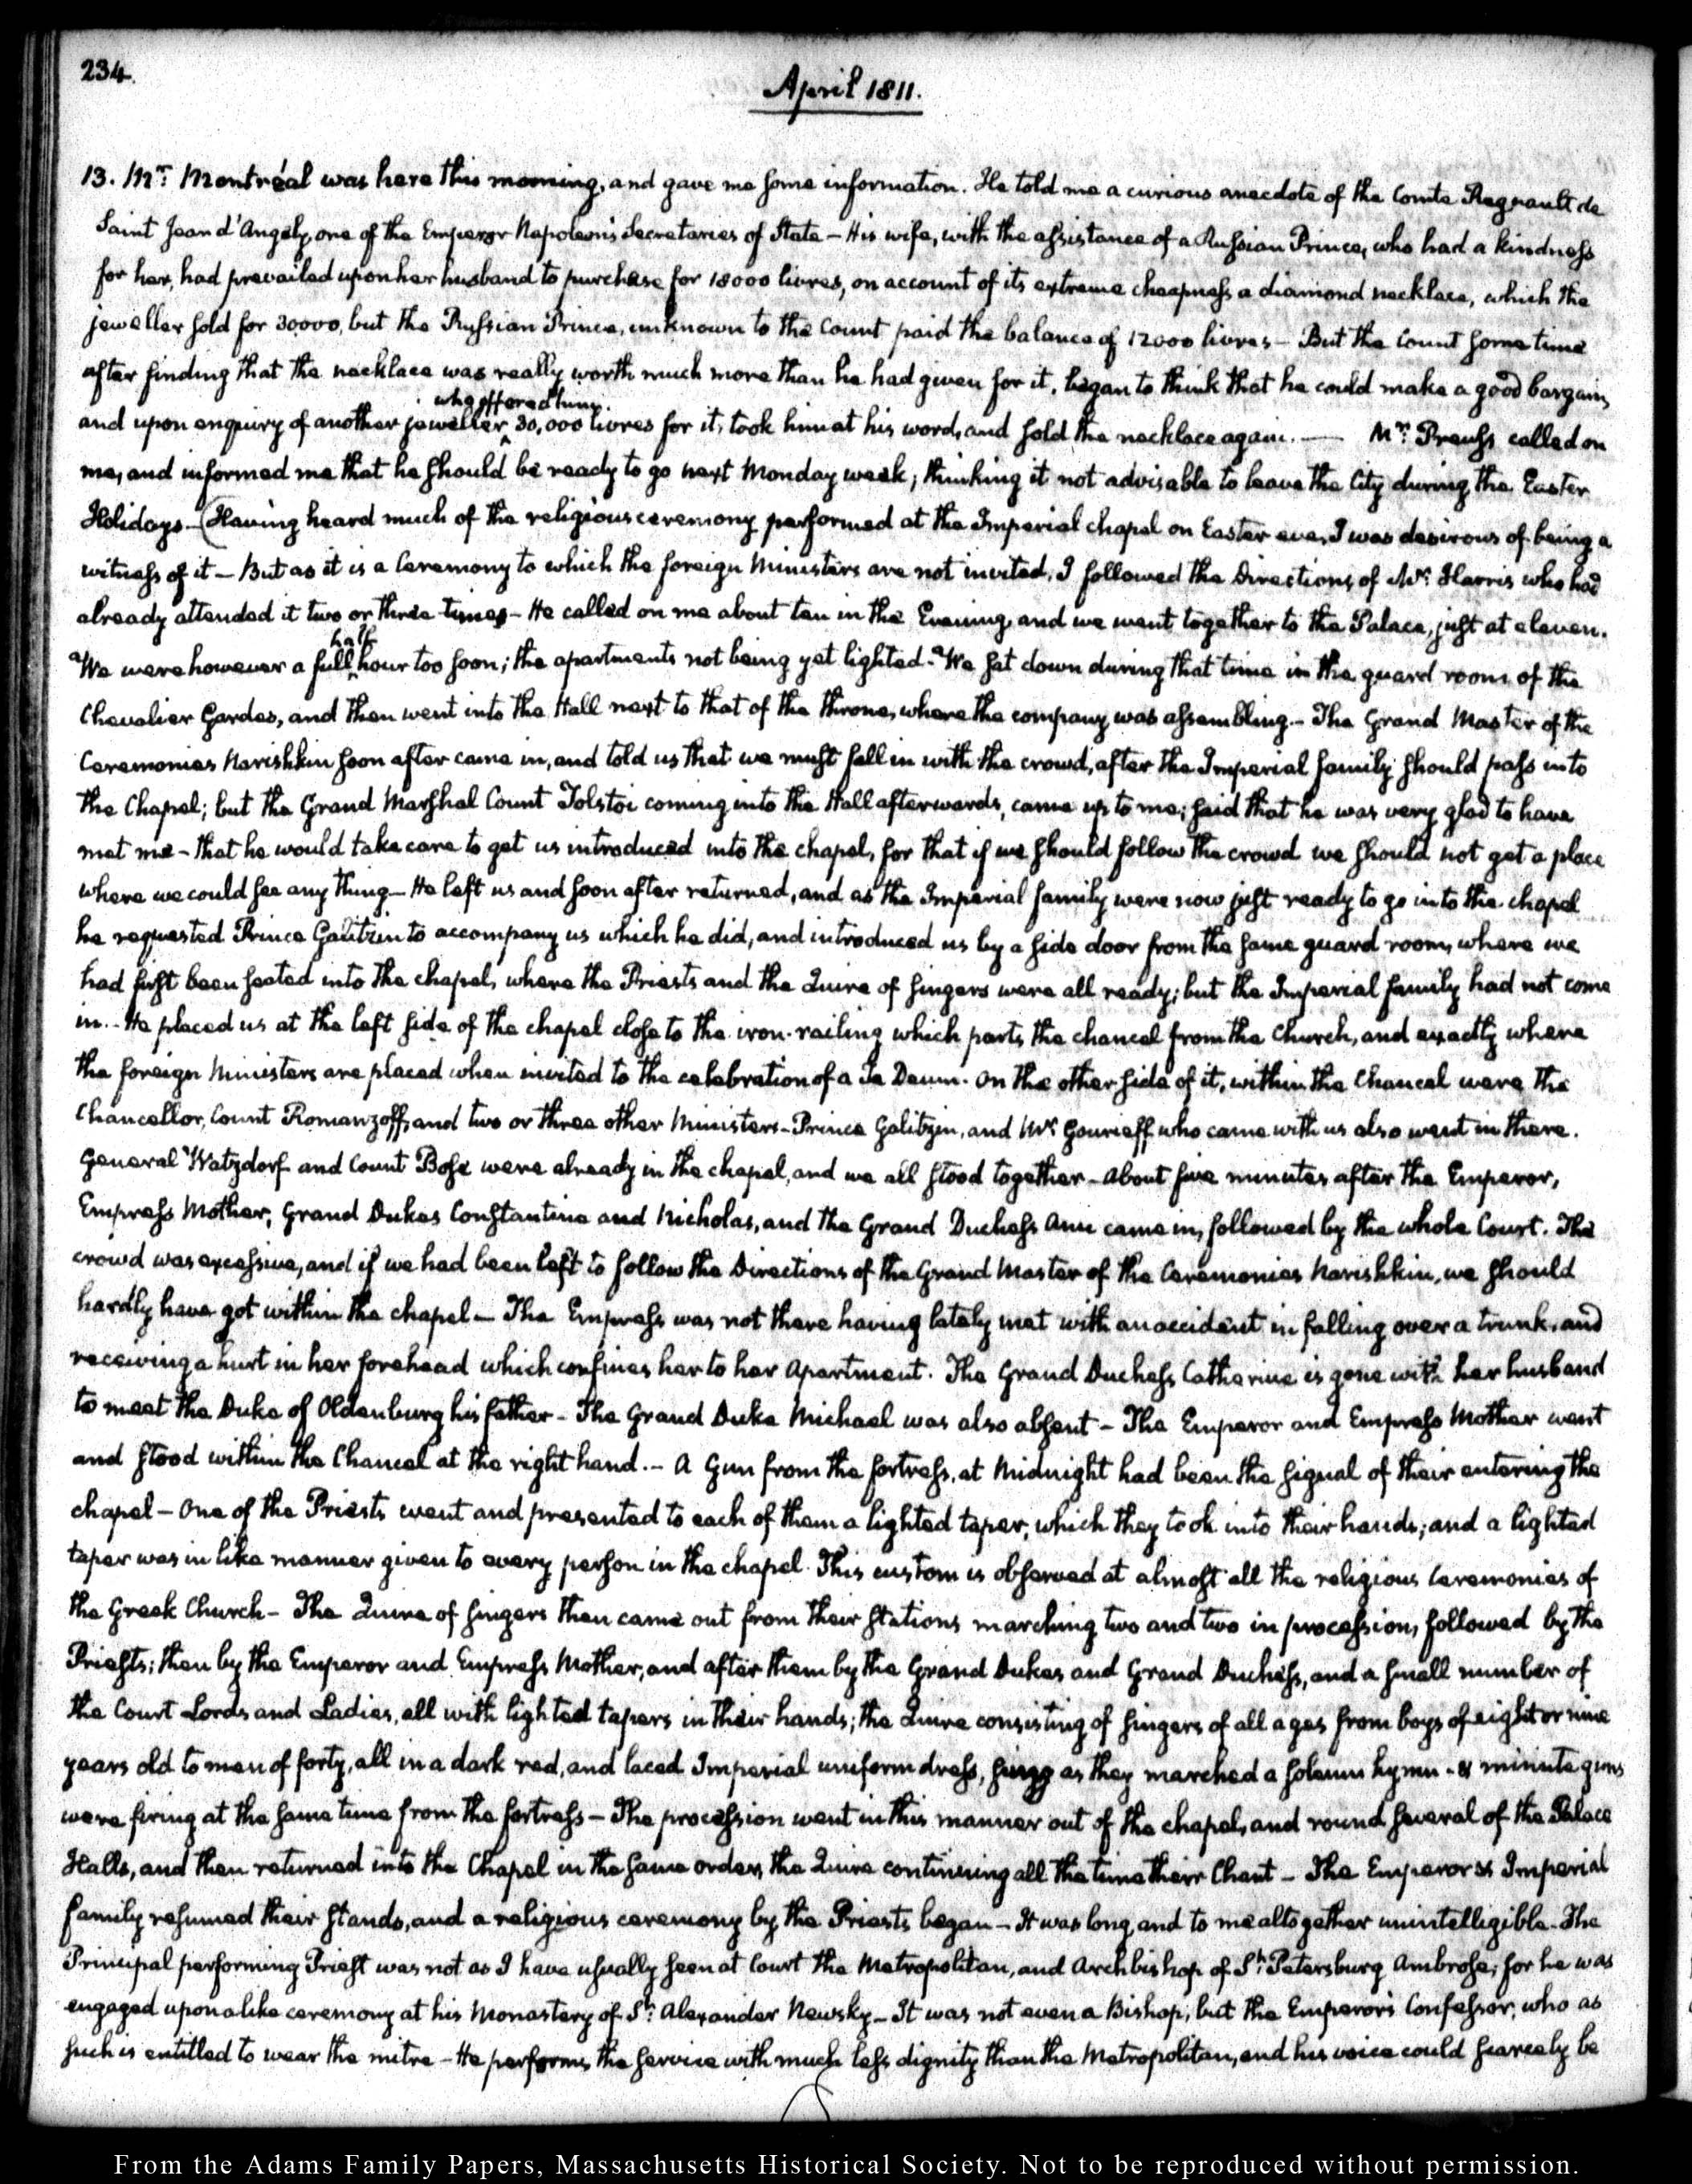 234.
April 1811.
13. Mr. Montréal was here this morning, and gave me some information. He told me a curious anecdote of the Comte Regnault de
Saint Jean d'Angély, one of the Emperor Napoleon's Secretaries of State – His wife, with the assistance of a Russian Prince, who had a kindness
for her, had prevailed upon her husband to purchase for 18000 livres, on account of its extreme cheapness a diamond necklace, which the
jeweller sold for 30000, but the Russian Prince, unknown to the Count paid the balance of 12000 livres – But the Count some time
after finding that the necklace was really worth much more than he had given for it, began to think that he could make a good bargain,
who offered him
and upon enquiry of another jeweller ^ 30,000 livres for it, took him at his word, and sold the necklace again. — Mr. Preuss called on
me, and informed me that he should be ready to go next Monday week; thinking it not advisable to leave the City during the Easter
Holidays – (Having heard much of the religious ceremony performed at the Imperial chapel on Easter eve, I was desirous of being a
witness of it – But as it is a Ceremony to which the foreign Ministers are not invited, I followed the Directions of Mr. Harris who had
already attended it two or three times – He called on me about ten in the Evening, and we went together to the Palace, just at eleven.
half
We were however a full ^ hour too soon; the apartments not being yet lighted – We sat down during that time in the guard room of the
Chevalier Gardes, and then went into the Hall next to that of the throne, where the company was assembling. – The Grand Master of the
Ceremonies Narishkin soon after came in, and told us that we must fall in with the crowd, after the Imperial family should pass into
the Chapel; but the Grand Marshal Count Tolstoi coming into the Hall afterwards, came up to me; said that he was very glad to have
met me – that he would take care to get us introduced into the chapel, for that if we should follow the crowd we should not get a place
where we could see any thing – He left us and soon after returned, and as the Imperial family were now just ready to go into the chapel
he requested Prince Galitzin to accompany us which he did, and introduced us by a side door from the same guard room, where we
had first been seated into the chapel, where the Priests and the Quire of singers were all ready; but the Imperial family had not come
in. – He placed us at the left side of the chapel close to the iron railing which parts the chancel from the Church, and exactly where
the foreign Ministers are placed when invited to the celebration of a Te Deum. On the other side of it, within the Chancel were the
Chancellor, Count Romanzoff, and two or three other Ministers – Prince Galitzin, and Mr. Gourieff who came with us also went in there.
General Watzdorf and Count Bose were already in the chapel, and we all stood together – About five minutes after the Emperor,
Empress Mother, Grand Dukes Constantine and Nicholas, and the Grand Duchess Ann came in, followed by the whole Court. The
crowd was excessive, and if we had been left to follow the Directions of the Grand Master of the Ceremonies Narishkin, we should
hardly have got within the chapel – The Empress was not there having lately met with an accident in falling over a trunk, and
receiving a hurt in her forehead which confines her to her Apartment. The Grand Duchess Catherine is gone with her husband
to meet the Duke of Oldenburg his father – The Grand Duke Michael was also absent – The Emperor and Empress Mother went
and stood within the Chancel at the right hand. – A Gun from the fortress, at Midnight had been the signal of their entering the
chapel – One of the Priests went and presented to each of them a lighted taper, which they took into their hands; and a lighted
taper was in like manner given to every person in the chapel. This custom is observed at almost all the religious Ceremonies of
the Greek Church – The Quire of singers then came out from their stations marching two and two in procession, followed by the
Priests; then by the Emperor and Empress Mother, and after them by the Grand Dukes and Grand Duchess, and a small number of
the Court Lords and Ladies, all with lighted tapers in their hands; the Quire consisting of singers of all ages from boys of eight or nine
years old to men of forty, all in a dark red, and laced Imperial uniform dress, sung as they marched a solemn hymn – & minute guns
were firing at the same time from the fortress – The procession went in this manner out of the chapel, and round several of the Palace
Halls, and then returned into the Chapel in the same order, the Quire continuing all the time their Chant – The Emperor & Imperial
family resumed their stands, and a religious ceremony by the Priests began – It was long, and to me altogether unintelligible. The
Principal performing Priest was not as I have usually seen at Court the Metropolitan, and Archbishop of St. Petersburg Ambrose; for he was
engaged upon a like ceremony at his Monastery of St. Alexander Newsky – It was not even a Bishop, but the Emperor's Confessor, who as
such is entitled to wear the mitre – He performs the service with much less dignity than the Metropolitan, and his voice could scarcely be
From the Adams Family Papers, Massachusetts Historical Society. Not to be reproduced without permission.